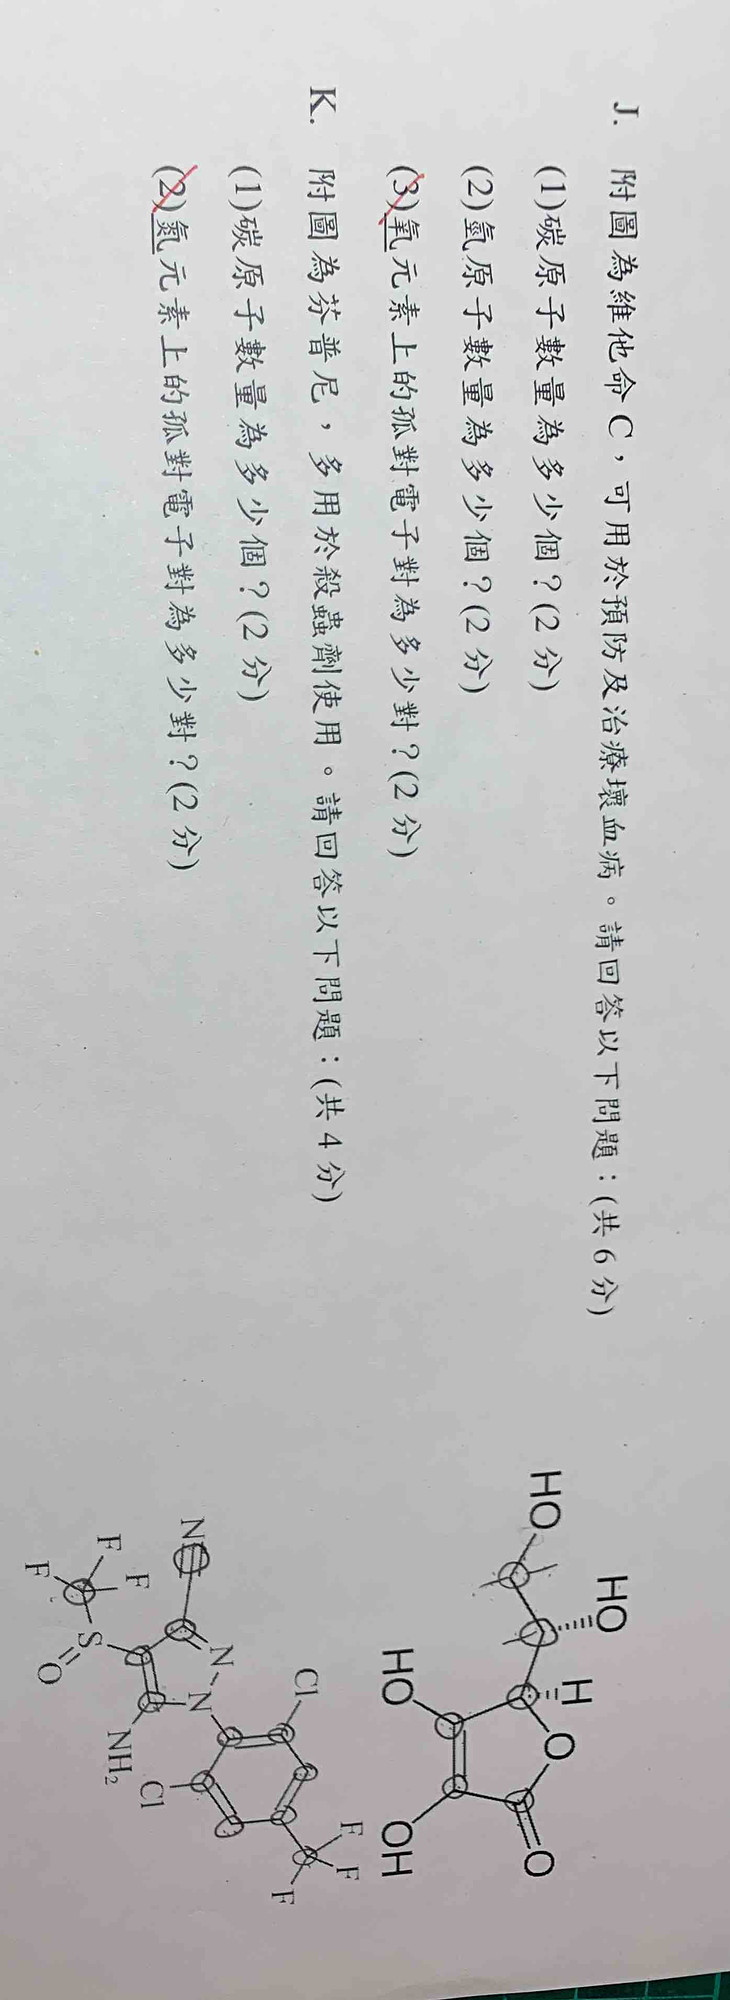 J. 附圖為維他命C，可用於預防及治療壞血病。請回答以下問題：(共6分)
(1)碳原子數量為多少個？(2分)
(2)氫原子數量為多少個？(2分)
(3)氧元素上的孤對電子對為多少對？(2分)
HO
HO
H
O
O
HO
OH
K. 附圖為芬普尼，多用於殺蟲劑使用。請回答以下問題：(共4分)
(1)碳原子數量為多少個？(2分)
(2)氮元素上的孤對電子對為多少對？(2分)
Cl
F
F
F
N
N
N
Cl
NH₂
F
F
F
S
O